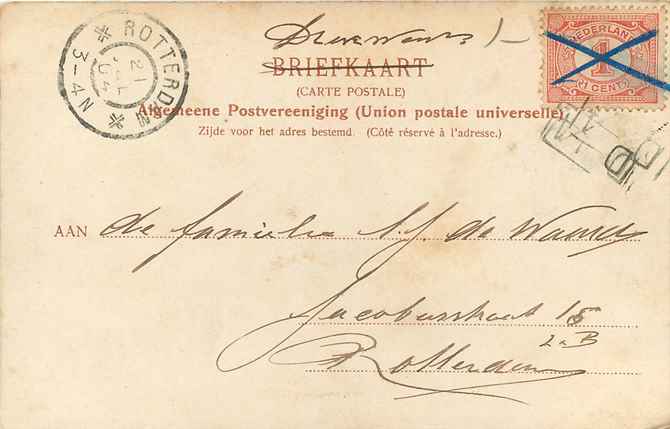 Drukwerk 1/-
BRIEFKAART
(CARTE POSTALE)
Algemeene Postvereeniging (Union postale universelle)
Zijde voor het adres bestemd. (Côté réservé à l'adresse.)
NEDERLAND
1
CENT
ROTTERDAM
21
JUL
04
3-4N
AAN de familie de Waard
Jacobusstraat 15
2 a B
Rotterdam